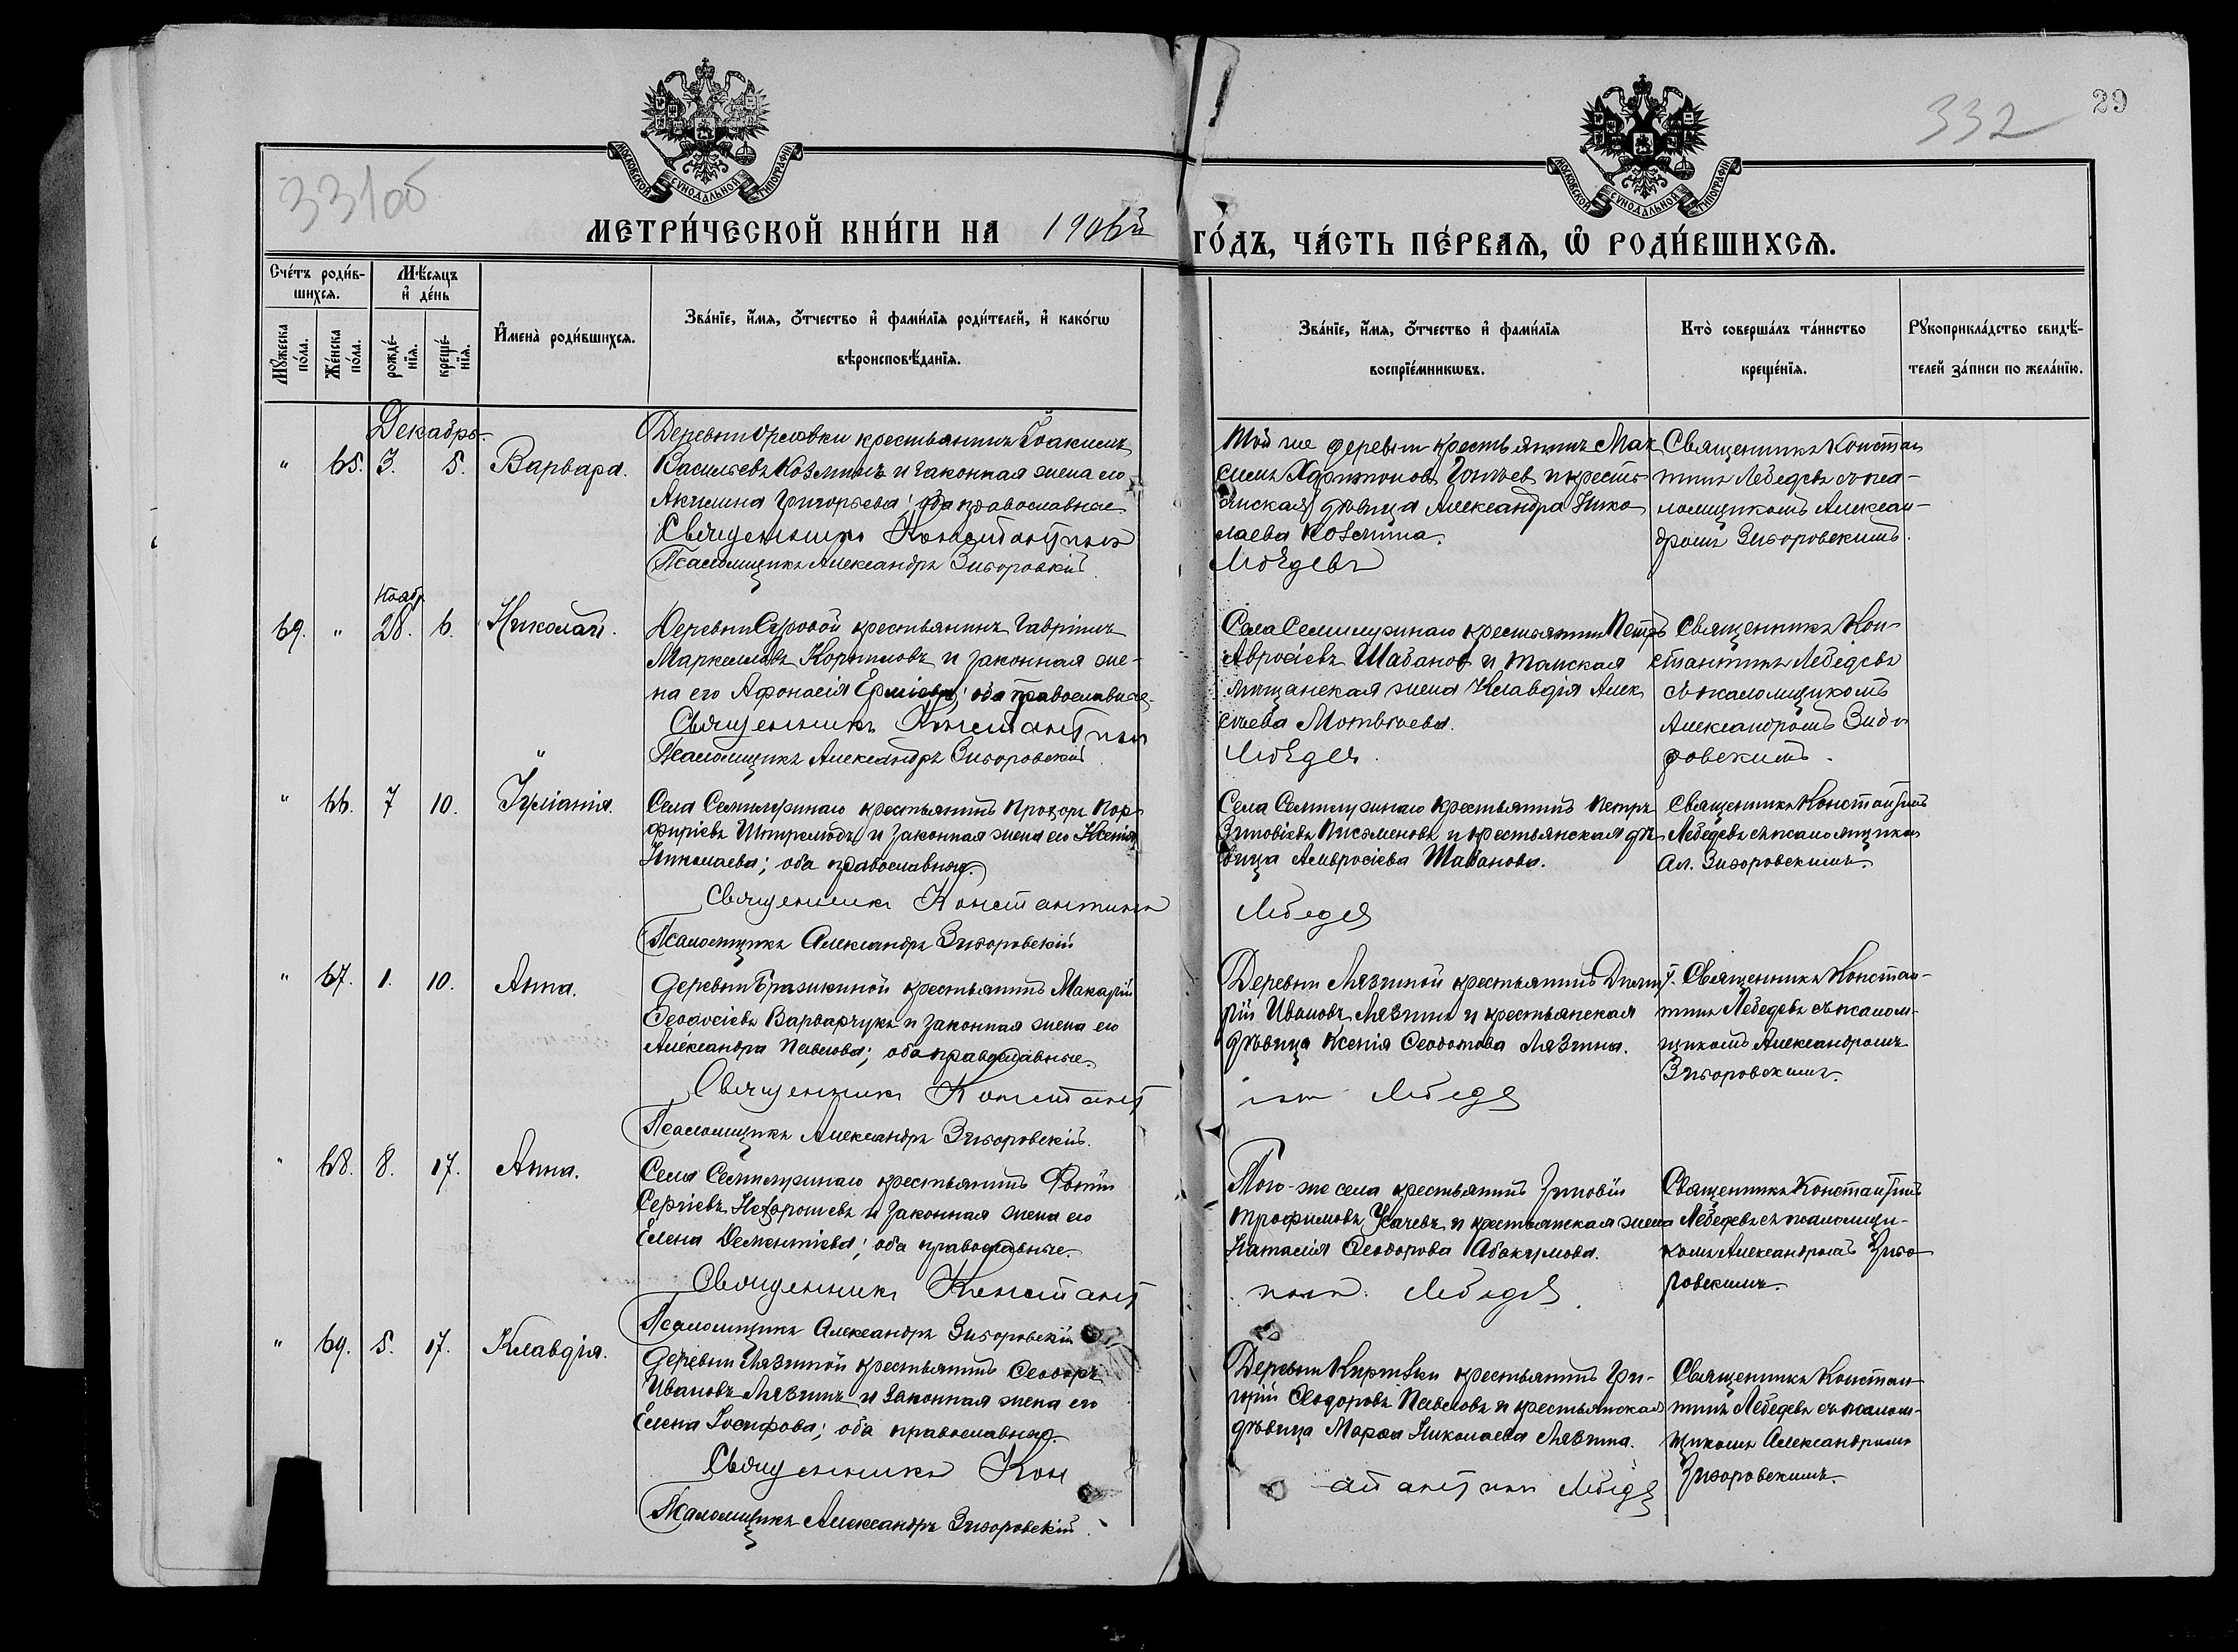 331об
332
29
МОСКОВСКОЙ СѴНОДАЛЬНОЙ ТИПОГРАФІИ
МОСКОВСКОЙ СѴНОДАЛЬНОЙ ТИПОГРАФІИ
МЕТРИ́ЧЕСКОЙ КНИ́ГИ НА 1906й ГО́ДЪ, ЧА́СТЬ ПЕ́РВАѦ, Ѡ҆ РОДИ́ВШИХСѦ.
Сче́тъ роди́в-
шихсѧ.
Мѣ́сѧцъ
и҆ де́нь
Мꙋ́жеска
по́ла.
Же́нска
по́ла.
рожде́-
нїѧ.
креще́-
нїѧ.
И҆мена̀ роди́вшихсѧ.
Зва́нїе, и҆́мѧ, ѻ҆́тчество и҆ фами́лїѧ роди́телей, и҆ како́гѡ
вѣроисповѣ́данїѧ.
Зва́нїе, и҆́мѧ, ѻ҆́тчество и҆ фами́лїѧ
воспрїе́мникѡвъ.
Кто̀ соверша́лъ та́инство
креще́нїѧ.
Рꙋкоприкла́дство свидѣ́-
телей за́писи по жела́нїю.
Декабрь.
" 65. 3. 5. Варвара.
Деревни Орловки крестьянинъ Іоакимъ
Васильевъ Козминъ и законная жена его
Акилина Григорьева; оба православные
Священникъ Константинъ
Псаломщикъ Александръ Зиворовскій
Той же деревни крестьянинъ Мак
симъ Харитоновъ и кресть
янская дѣвица Александра Нико
лаева Козмина.
Лебедевъ
Священникъ Констан
тинъ Лебедевъ съ пса-
ломщикомъ Алексан-
дромъ Зиворовскимъ.
Ноябр.
69. " 28. 6. Николай.
Деревни крестьянинъ Гавріилъ
Маркелловъ Корниловъ и законная же-
на его Афонасія Ерміева; оба православные.
Священникъ Константинъ
Псаломщикъ Александръ Зиворовскій
Села Семилужнаго крестьянинъ Петръ
Авросіевъ Шабановъ и томская
мѣщанская жена Клавдія Алек
сѣева Мотвѣева.
Лебедев.
Священникъ Кон-
стантинъ Лебедевъ
съ псаломщикомъ
Александромъ Зиво
ровскимъ.
"
" 66. 7 10. Іуліанія.
Села Семилужнаго крестьянинъ Прохоръ Пор-
фиріевъ и законная жена его Ксенія
Николаева; оба православные.
Священникъ Константинъ
Псаломщикъ Александръ Зиворовскій
Села Семилужнаго крестьянинъ Петръ
Зиновіевъ Письменовъ и крестьянская дѣ
вица Амвросіева Шабанова.
Лебедев
Священникъ Константинъ
Лебедевъ съ псаломщиком
Ал. Зиворовскимъ.
" 67. 1. 10. Анна.
Деревни Бражкиной крестьянинъ Макарій
Ѳеодосіевъ Варварчукъ и законная жена его
Александра Павлова; оба православные.
Священникъ Констант
Псаломщикъ Александръ Зиворовскій.
Деревни Мязиной крестьянинъ Дими
рій Ивановъ Мязинъ и крестьянская
дѣвица Ксенія Ѳеодотова Мязина.
инъ Лебедев
Священникъ Констан-
тинъ Лебедевъ съ псалом-
щикомъ Александромъ
Зиворовскимъ.
" 68. 8. 17. Анна.
Села Семилужнаго крестьянинъ Фотій
Сергіевъ и законная жена его
Елена Дементіева; оба православные.
Священникъ Констант
Псаломщикъ Александръ Зиворовскій
Того-же села крестьянинъ Зиновій
Трофимовъ Усачевъ и крестьянская жена
Наталія Ѳеодорова Абакумова.
инъ. Лебедев.
Священникъ Константинъ
Лебедевъ съ псаломщи-
комъ Александромъ Зиво-
ровскимъ.
" 69. 5. 17. Клавдія.
Деревни Мязиной крестьянинъ Ѳеодоръ
Ивановъ Мязинъ и законная жена его
Елена Іосифова; оба православные.
Священникъ Кон
Псаломщикъ Александръ Зиворовскій.
Деревни крестьянинъ Гри-
горій Ѳеодоровъ Павловъ и крестьянская
дѣвица Марѳа Николаева Мязина.
стантинъ Лебедев
Священникъ Констан-
тинъ Лебедевъ съ псалом-
щикомъ Александромъ
Зиворовскимъ.